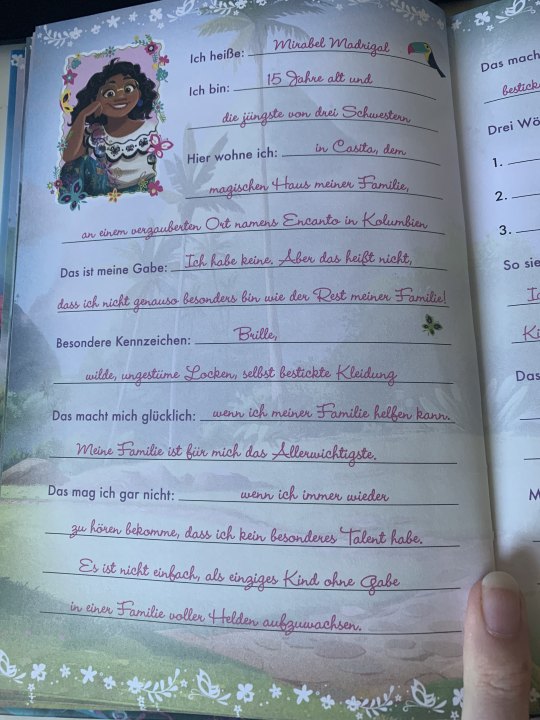 Ich heiße: Mirabel Madrigal
Ich bin: 15 Jahre alt und
die jüngste von drei Schwestern
Hier wohne ich: in Casita, dem
magischen Haus meiner Familie,
an einem verzauberten Ort namens Encanto in Kolumbien
Das ist meine Gabe: Ich habe keine. Aber das heißt nicht,
dass ich nicht genauso besonders bin wie der Rest meiner Familie!
Besondere Kennzeichen: Brille,
wilde, ungestüme Locken, selbst bestickte Kleidung
Das macht mich glücklich: wenn ich meiner Familie helfen kann.
Meine Familie ist für mich das Allerwichtigste.
Das mag ich gar nicht: wenn ich immer wieder
zu hören bekomme, dass ich kein besonderes Talent habe.
Es ist nicht einfach, als einziges Kind ohne Gabe
in einer Familie voller Helden aufzuwachsen.
Das mach
bestick
Drei Wö
1.
2.
3.
So sie
Ki
Das
M